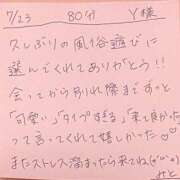 7/23 80分 Y様
久しぶりの風俗遊びに
選んでくれてありがとう!!
会ってからお別れ際までずっと
「可愛い」「タイプすぎる」「来て良かった」
って言ってくれて嬉しかった♡♡
またストレス溜まったら来てね(*'ω'*)
みと